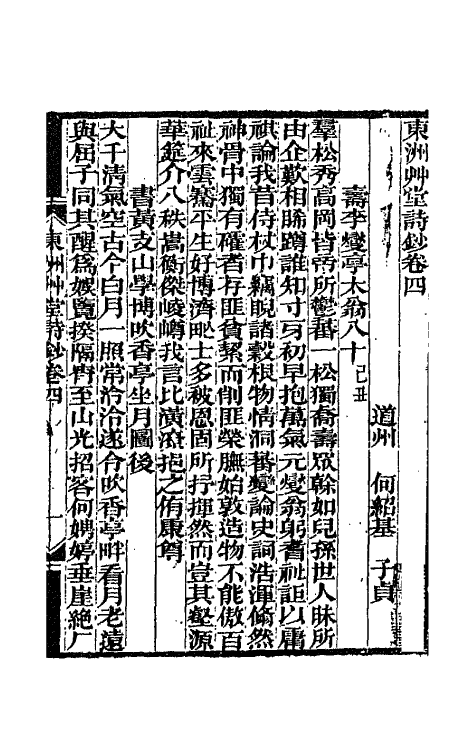 東洲艸堂詩鈔卷四
道州 何紹基 子貞
壽李燮亭太翁八十己丑
羣松秀高岡皆帝所鬱蕃一松獨喬壽眾榦如兒孫世人昧所
由企歎相睎蹲誰知寸弱初早抱萬氣元燮翁躬耆祉詎以庸
祺論我首侍杖巾竊睨諸穀根物情洞蕃變論史詞浩渾翛然
神骨中獨有確者存匪貧絜而削匪榮膴始敦造物不能傲百
祉來雲騫平生好博濟畸士多被恩固所抒揮然而豈其壑源
華筵介八秩嵩衡傑崚嶟我言比潢潦挹之侑康尊
書黃支山學博吹香亭坐月圖後
大千清氣空古今白月一照常泠泠遂令吹香亭畔看月老遠
與屈子同其醒爲嫁覽揆隔宵至山光招客何娉婷垂崖絕厂
東洲艸堂詩鈔卷四